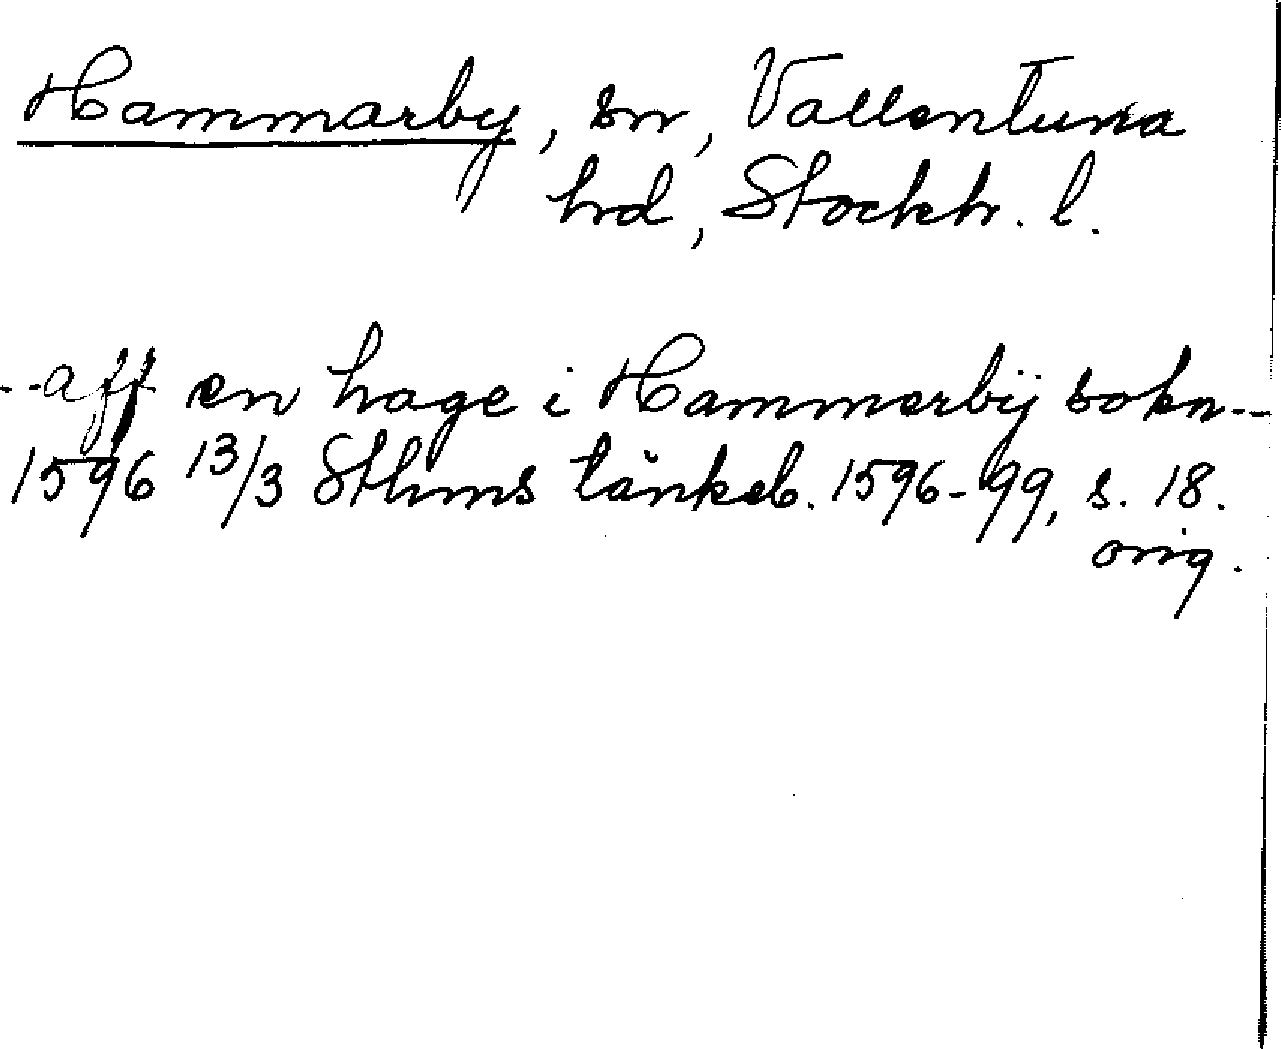 Hammarby, sn, Vallentuna
hrd, Stockh. l.
--aff en hage i Hammerbÿ sokn--
1596 13/3 Sthms tänkeb. 1596-99, s. 18.
orig.